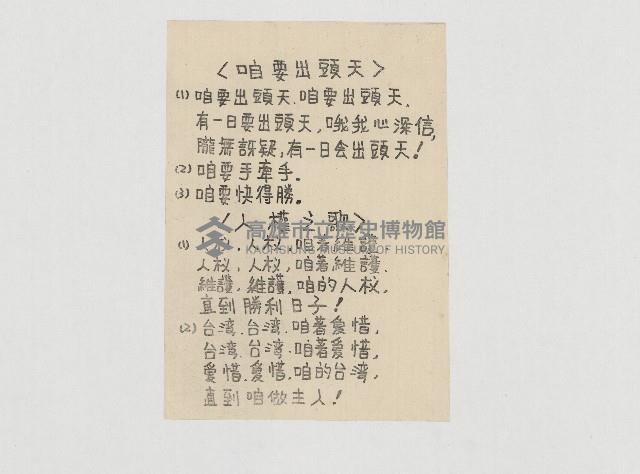 〈咱要出頭天〉
(1) 咱要出頭天.咱要出頭天.
有一日要出頭天,哦我心深信,
朧無訝疑,有一日会出頭天!
(2) 咱要手牽手.
(3) 咱要快得勝.
〈人權之歌〉
(1) 人权,人权,咱著維護.
人权,人权,咱著維護.
維護,維護,咱的人权,
直到勝利日子!
(2) 台湾.台湾.咱著爱惜,
台湾.台湾.咱著爱惜,
爱惜.爱惜.咱的台湾,
直到咱做主人!
高雄市立歷史博物館
KAOHSIUNG MUSEUM OF HISTORY